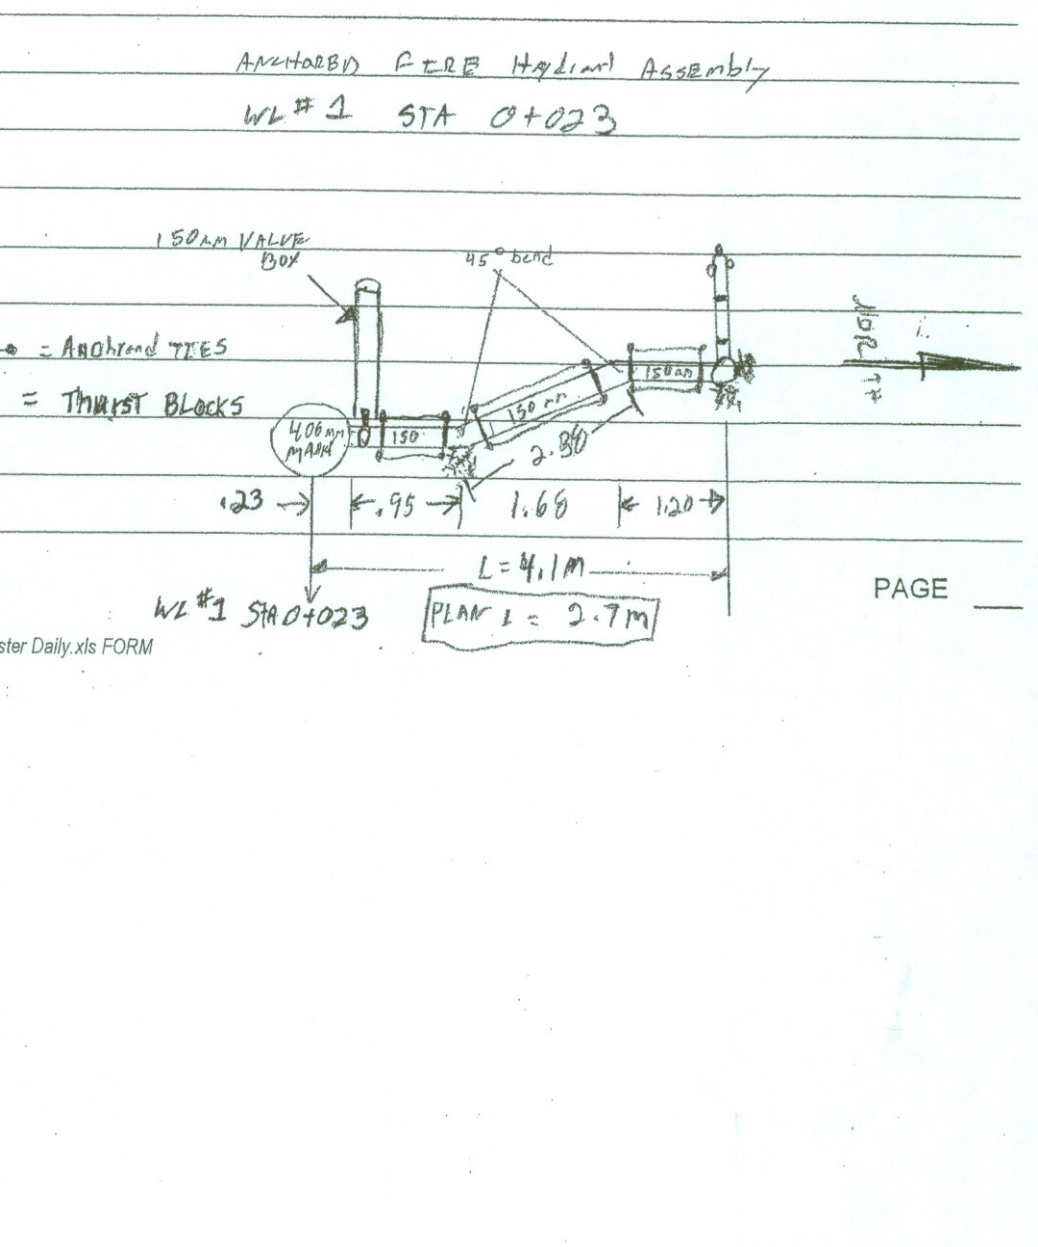 ANCHORED FIRE Hydrant Assembly
WL # 1 STA 0+023
150mm VALVE
BOX
45° bend
NORTH
= Anchrend TIES
= Thurst BLOCKS
406mm
MAIN
150
150 mm
150mm
2.38
.23
.95
1.68
1.20
L = 4.1m
WL #1 STA 0+023
PLAN L = 2.7m
PAGE
ster Daily.xls FORM